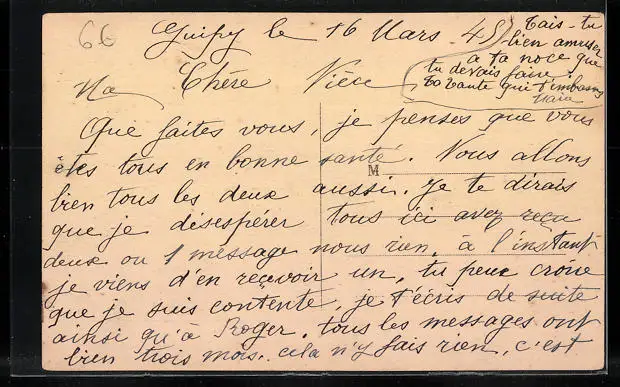 66
Guipy le 16 Mars 45
Tais-tu
bien amuser
a ta noce que
tu devais faire.
ta tante qui t'embrasse
Ma Chère Nièce
Que faites vous, je penses que vous
êtes tous en bonne santé. Nous allons
M
bien tous les deux aussi. Je te dirais
que je désespérer tous ici avez reçu
deux ou 1 message nous rien. à l'instant
je viens d'en reçevoir un, tu peux croire
que je suis contente, je t'écris de suite
ainsi qu'à Roger. tous les messages ont
bien trois mois. cela n'y fais rien, c'est